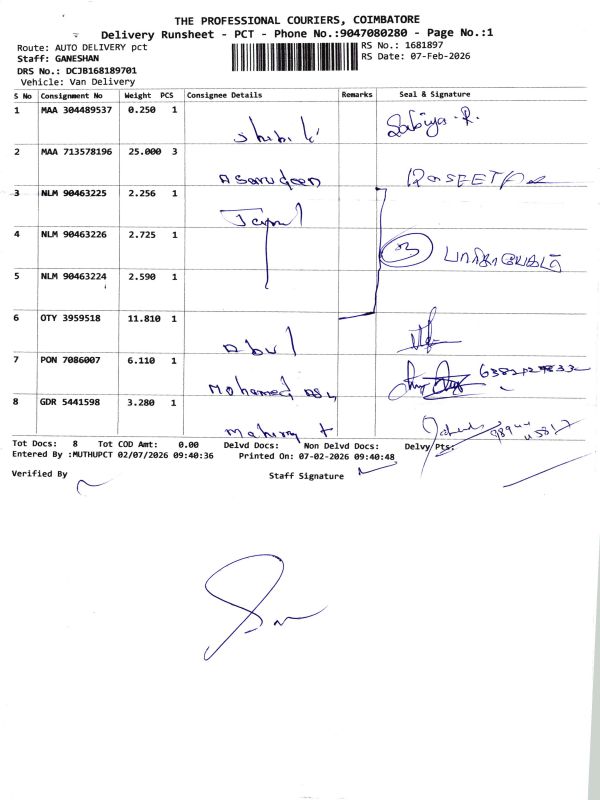 THE PROFESSIONAL COURIERS, COIMBATORE
Delivery Runsheet - PCT - Phone No.:9047080280 - Page No.:1
Route: AUTO DELIVERY pct
RS No.: 1681897
Staff: GANESHAN
RS Date: 07-Feb-2026
DRS No.: DCJB168189701
Vehicle: Van Delivery
S No Consignment No Weight PCS Consignee Details Remarks Seal & Signature
1 MAA 304489537 0.250 1 Sabiya. R.
2 MAA 713578196 25.000 3 Asarudeen
3 NLM 90463225 2.256 1
4 NLM 90463226 2.725 1 3
5 NLM 90463224 2.590 1
6 OTY 3959518 11.810 1 Abul
7 PON 7086007 6.110 1 Mohamed
8 GDR 5441598 3.280 1
Tot Docs: 8 Tot COD Amt: 0.00 Delvd Docs: Non Delvd Docs: Delvy Pts:
Entered By :MUTHUPCT 02/07/2026 09:40:36 Printed On: 07-02-2026 09:40:48
Verified By Staff Signature